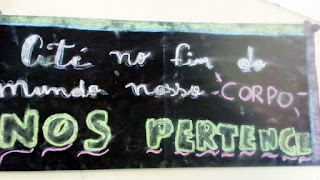 Até no fim do
mundo nosso CORPO
NOS PERTENCE